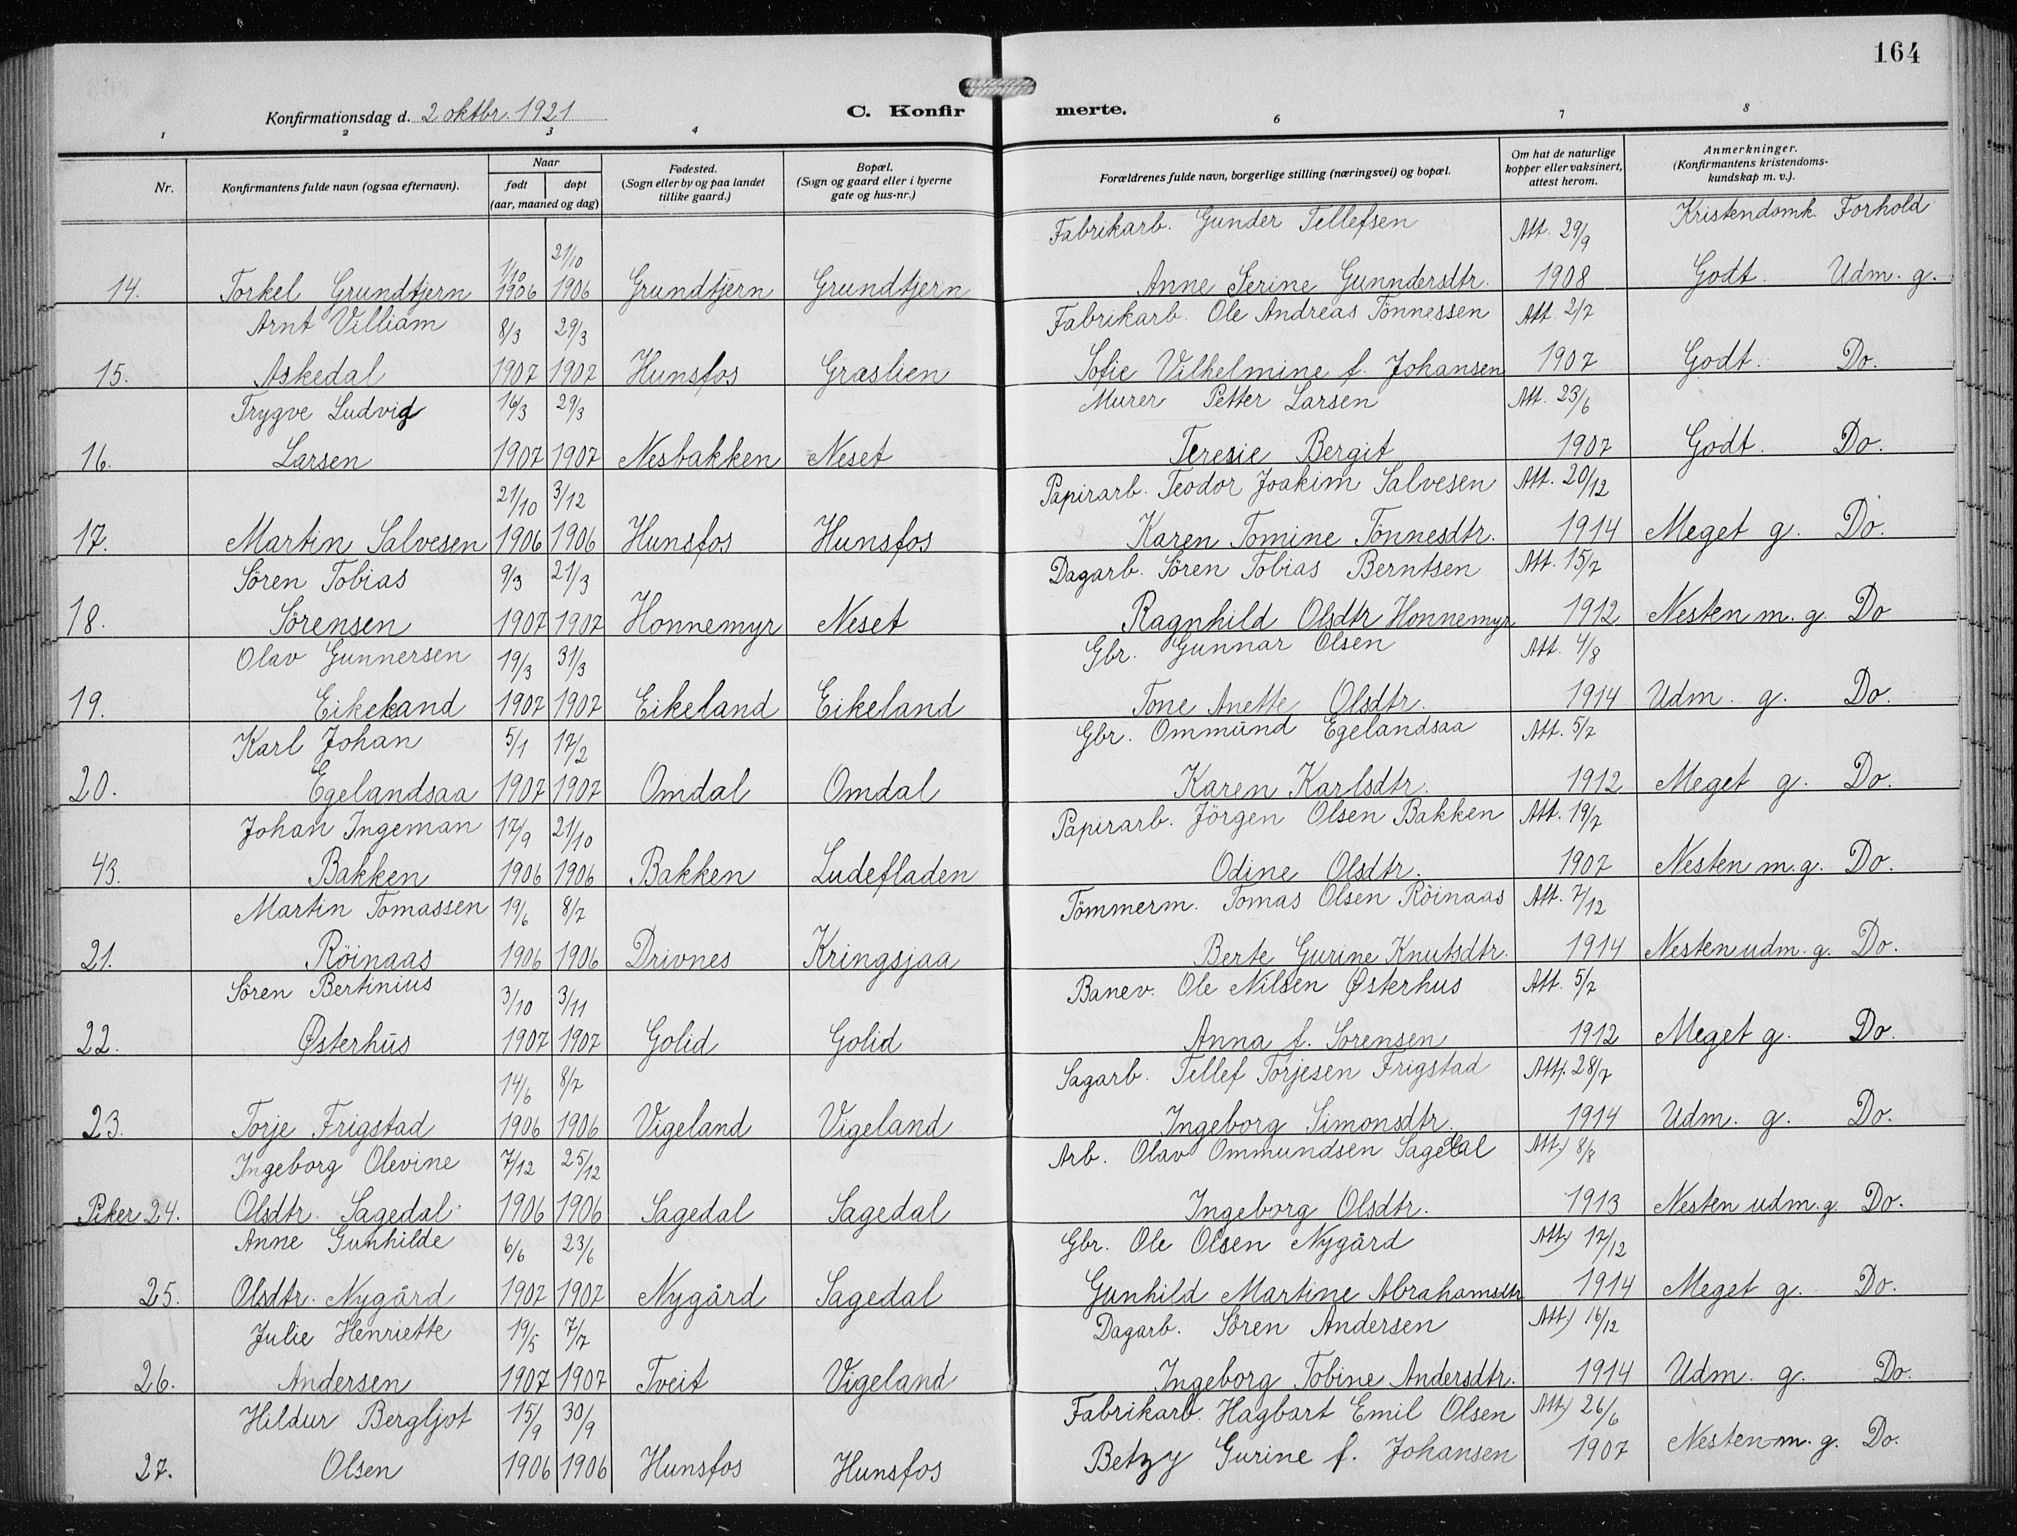 164
Konfirmationsdag d. 2 oktbr. 1921
C. Konfirmerte.
1 2 3 4 6 7 8
Nr.
Konfirmantens fulde navn (ogsaa efternavn).
Naar
født døpt
(aar, maaned og dag)
Fødested.
(Sogn eller by og paa landet
tillike gaard.)
Bopæl.
(Sogn og gaard eller i byerne
gate og hus-nr.)
Forældrenes fulde navn, borgerlige stilling (næringsvei) og bopæl.
Om hat de naturlige
kopper eller vaksinert,
attest herom.
Anmerkninger.
(Konfirmantens kristendoms-
kundskap m. v.).
Kristendomk. Forhold
1/10 21/10 Fabrikarb. Gunder Tellefsen Att. 29/9
14. Torkel Grundtjern 1906 1906 Grundtjern Grundtjern Anne Serine Gunndersdtr. 1908 Godt. Udm. g.
Arnt Villiam 8/3 29/3 Fabrikarb. Ole Andreas Tönnessen Att. 2/7
15. Askedal 1907 1907 Hunsfos Graslien Sofie Vilhelmine f. Johansen 1907 Godt. Do.
Trygve Ludvig 16/3 29/3 Murer Petter Larsen Att. 23/6
16. Larsen 1907 1907 Nesbakken Neset Teresie Bergit 1907 Godt. Do.
21/10 3/12 Papirarb. Teodor Joakim Salvesen Att. 20/12
17. Martin Salvesen 1906 1906 Hunsfos Hunsfos Karen Tomine Tönnesdtr. 1914 Meget g. Do.
Sören Tobias 9/3 21/3 Dagarb. Sören Tobias Berntsen Att. 15/7
18. Sörensen 1907 1907 Honnemyr Neset Ragnhild Olsdtr Honnemyr 1912 Nesten m. g. Do
Olav Gunnersen 19/3 31/3 Gbr. Gunnar Olsen Att. 4/8
19. Eikeland 1907 1907 Eikeland Eikeland Tone Anette Olsdtr. 1914 Udm. g. Do.
Karl Johan 5/1 17/2 Gbr. Ommund Egelandsaa Att. 5/7
20. Egelandsaa 1907 1907 Omdal Omdal Karen Karlsdtr. 1912 Meget g. Do.
Johan Ingeman 17/9 21/10 Papirarb. Jörgen Olsen Bakken Att. 19/7
43. Bakken 1906 1906 Bakken Ludefladen Odine Olsdtr. 1907 Nesten m. g. Do.
Martin Tomassen 19/6 8/7 Tömmerm. Tomas Olsen Röinaas Att. 7/12
21. Röinaas 1906 1906 Drivnes Kringsjaa Berte Gurine Knutsdtr. 1914 Nesten udm. g. Do.
Sören Bertinius 3/10 3/11 Banev. Ole Nilsen Østerhus Att. 5/7
22. Østerhus 1907 1907 Golid Golid Anna f. Sörensen 1912 Meget g. Do.
14/6 8/7 Sagarb. Tellef Torjesen Frigstad Att. 28/7
23. Torje Frigstad 1906 1906 Vigeland Vigeland Ingeborg Simonsdtr. 1914 Udm. g. Do.
Ingeborg Olevine 7/12 25/12 Arb. Olav Ommundsen Sagedal Att. 8/8
Piker 24. Olsdtr. Sagedal 1906 1906 Sagedal Sagedal Ingeborg Olsdtr. 1913 Nesten udm. g. Do.
Anne Gunhilde 6/6 23/6 Gbr. Ole Olsen Nygård Att. 17/12
25. Olsdtr. Nygård 1907 1907 Nygård Sagedal Gunhild Martine Abrahamsdtr 1914 Meget g. Do.
Julie Henriette 19/5 7/7 Dagarb. Sören Andersen Att. 16/12
26. Andersen 1907 1907 Tveit Vigeland Ingeborg Tobine Andersdtr. 1914 Udm. g. Do.
Hildur Bergljot 15/9 30/9 Fabrikarb. Hagbart Emil Olsen Att. 26/6
27. Olsen 1906 1906 Hunsfos Hunsfos Betzy Gurine f. Johansen 1907 Nesten m. g. Do.